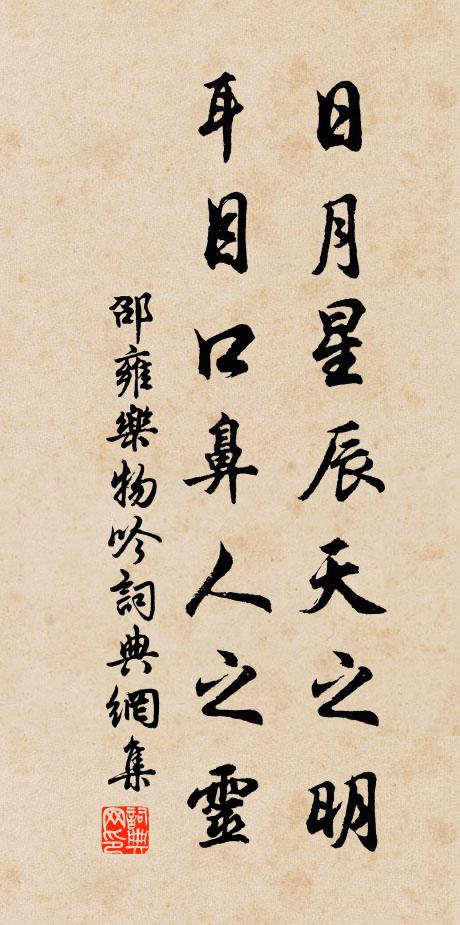 日月星辰天之明
耳目口鼻人之靈
邵雍樂物吟詞典網集
詞典网印